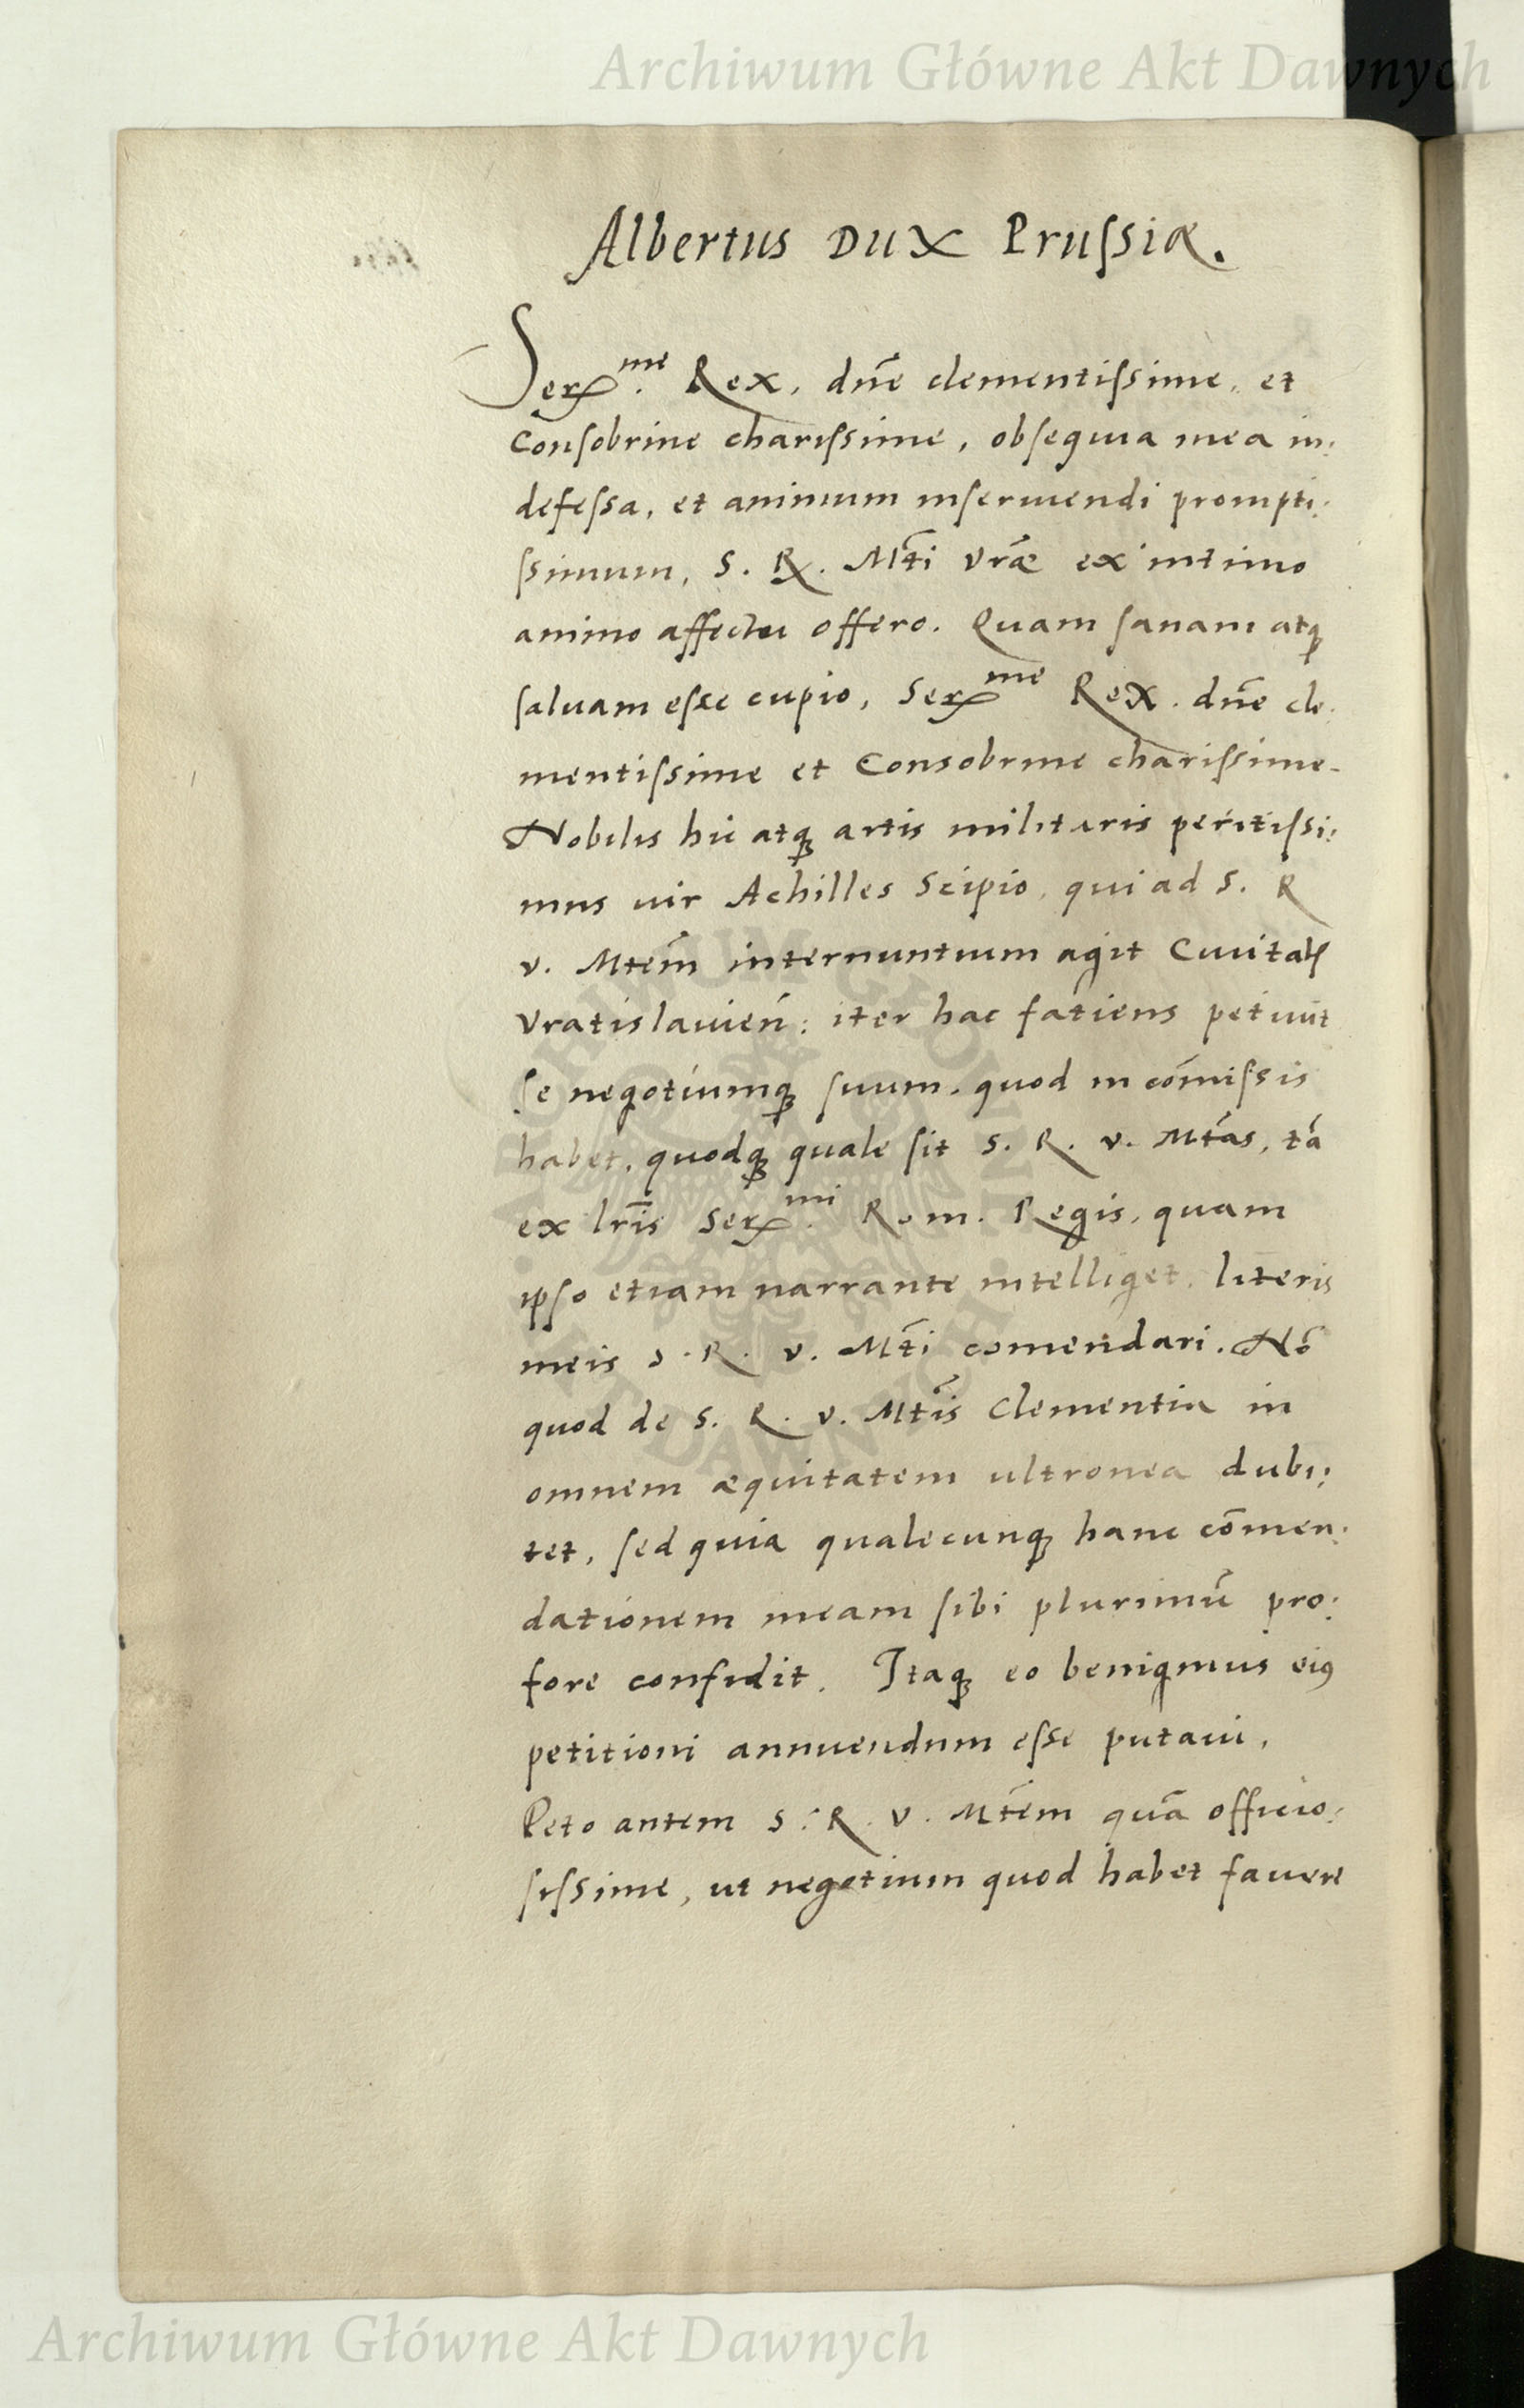 Archiwum Główne Akt Dawnych
Albertus Dux Prussiæ.
Ser.me Rex, dn̄e clementissime, et
Consobrine charissime, obsequia mea in:
defessa, et animum inserviendi prompti:
ssimum, S. R. Mt̄i Vr̄æ ex intimo
animo affectu offero. Quam sanam atq;
salvam esse cupio, Ser.me Rex. dn̄e cle:
mentissime et Consobrine charissime.
Nobilis hic atq; artis militaris peritissi:
mus vir Achilles Scipio, qui ad S. R
v. Mtēm internuntium agit Civitatis
Vratislavień: iter hac fatiens petivit
se negotiumq; suum, quod in cōmissis
habet, quodq; quale sit S. R. v. Mtās, tā
ex lr̄is Ser.mi Rom. Regis, quam
ipso etiam narrante intelliget, literis
meis S. R. v. Mt̄i comendari. Nō
quod de S. R. v. Mt̄is Clementia in
omnem æquitatem ultronea dubi:
tet, sed quia qualecunq; hanc cōmen:
dationem meam sibi plurimū pro:
fore confidit. Itaq; eo benignius eius
petitioni annuendum esse putavi,
Peto autem S. R. V. Mtēm quā officio:
sissime, ut negotium quod habet favere
Archiwum Główne Akt Dawnych